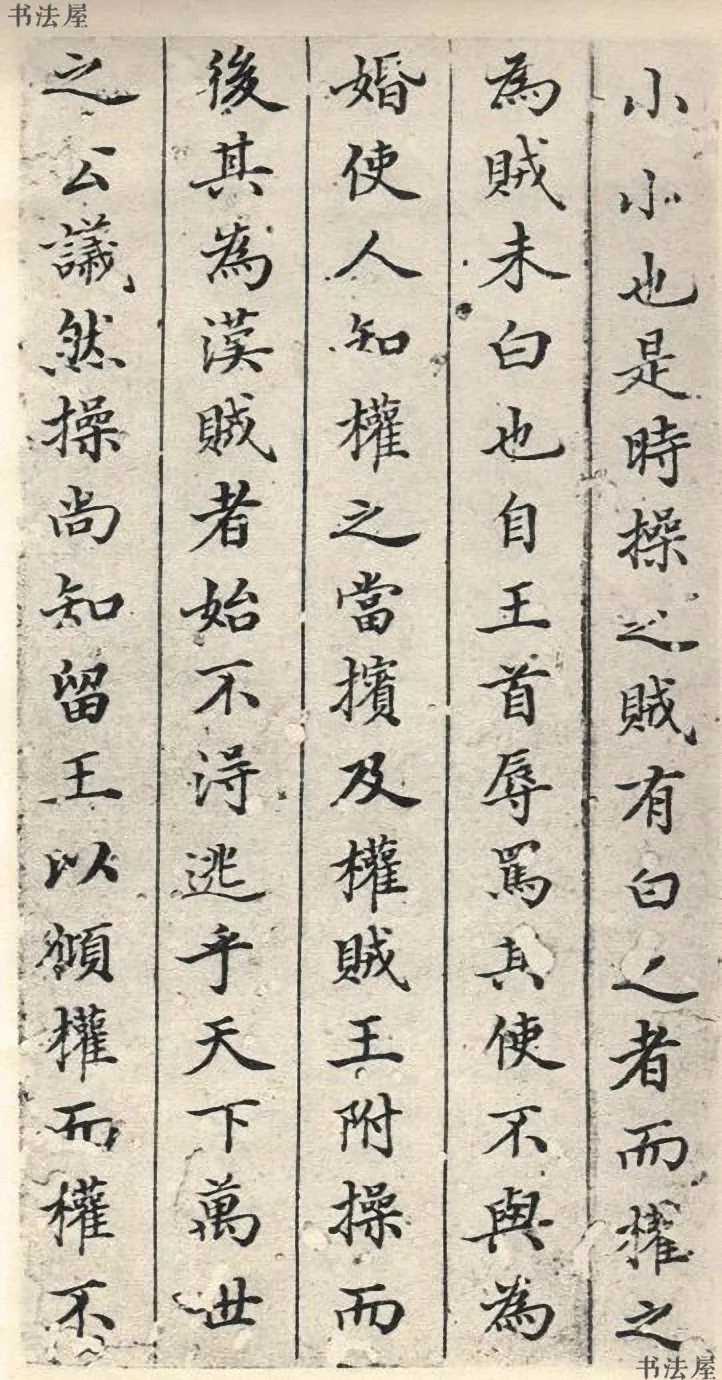 书法屋
小小也是時操之賊有白之者而權之
為賊未白也自王首辱罵其使不與為
婚使人知權之當擯及權賊王附操而
後其為漢賊者始不得逃乎天下萬世
之公議然操尚知留王以頎權而權不
书法屋